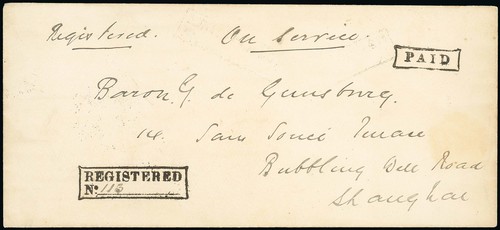 Registered. On Service.
PAID
Baron G. de Gunsburg.
14. Sans Souci Terrace
Bubbling Well Road
Shanghai
REGISTERED
No. 113